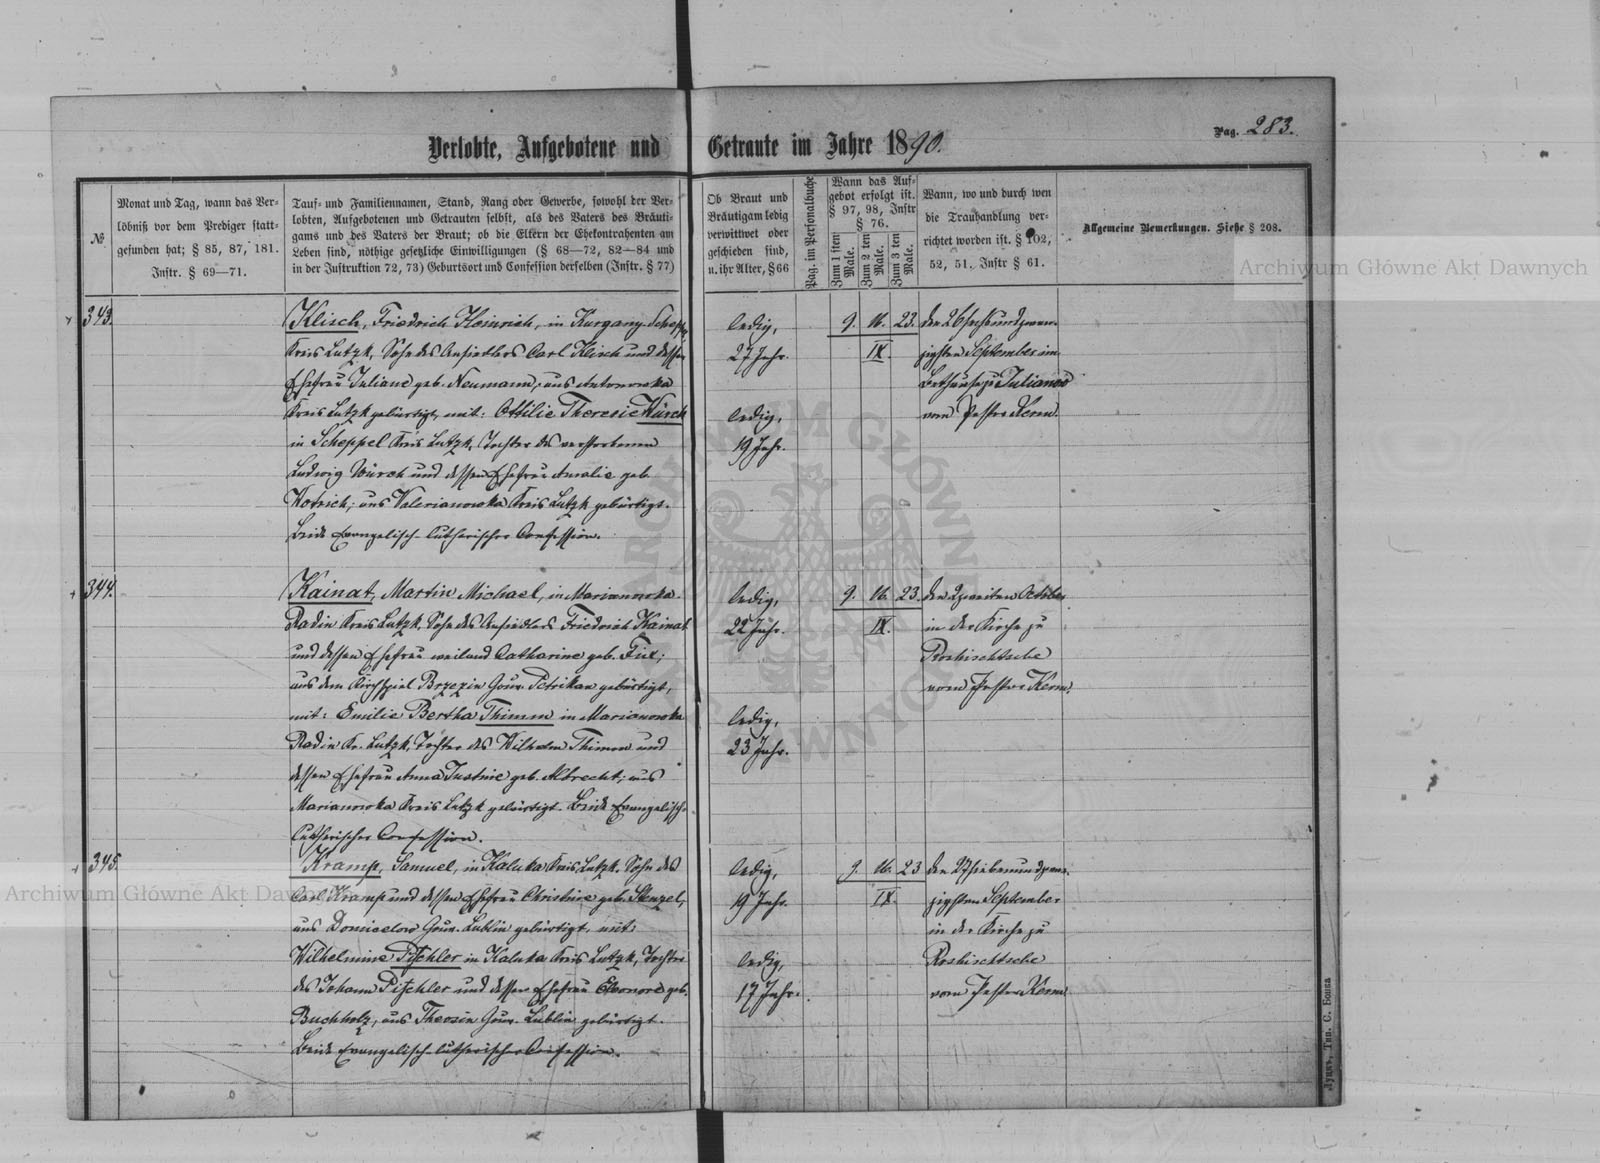 Pag. 283.
Verlobte, Aufgebotene und Getraute im Jahre 1890.
№
Monat und Tag, wann das Ver-
löbniß vor dem Prediger statt-
gefunden hat; § 85, 87, 181.
Instr. § 69—71.
Tauf- und Familiennamen, Stand, Rang oder Gewerbe, sowohl der Ver-
lobten, Aufgebotenen und Getrauten selbst, als des Vaters des Bräuti-
gams und des Vaters der Braut; ob die Eltern der Ehekontrahenten am
Leben sind, nöthige gesetzliche Einwilligungen (§ 68—72, 82—84 und
in der Instruktion 72, 73) Geburtsort und Confession derselben (Instr. § 77)
Ob Braut und
Bräutigam ledig
verwittwet oder
geschieden sind,
u. ihr Alter, § 66
Pag. im Personalbuche
Wann das Auf-
gebot erfolgt ist.
§ 97, 98, Instr
§ 76.
Zum 1 sten Male.
Zum 2 ten Male.
Zum 3 ten Male.
Wann, wo und durch wen
die Trauhandlung ver-
richtet worden ist. § 102,
52, 51. Instr § 61.
Allgemeine Bemerkungen. Siehe § 208.
343.
Klisch, Friedrich Heinrich, in Kurgany-Scheppel
Kreis Lutzk, Sohn des Ansiedlers Carl Klisch und dessen
Ehefrau Juliane geb. Neumann, aus Antonowka
Kreis Lutzk gebürtigt, mit: Ottilie Theresie Würch
in Scheppel Kreis Lutzk, Tochter des verstorbenen
Ludwig Würch und dessen Ehefrau Amalie geb.
aus Valerianowka Kreis Lutzk gebürtigt.
Beide Evangelisch-lutherischer Confession.
ledig,
27 Jahr.
ledig,
19 Jahr.
9. 16. 23.
IX.
den 26 sechsundzwan-
zigsten September im
Bethause zu Julianow
vom Pastor Kerm.
344.
Kainat, Martin Michael, in Marianowka-
Radin Kreis Lutzk, Sohn des Ansiedlers Friedrich Kainat
und dessen Ehefrau weiland Catharine geb. Fix;
aus dem Kirchspiel Brzezin Gouv. Petrikau gebürtigt,
mit: Emilie Bertha Thimm in Marianowka
Radin Kr. Lutzk, Tochter des Wilhelm Thimm und
dessen Ehefrau Anna Justine geb. Albrecht; aus
Marianowka Kreis Lutzk gebürtigt. Beide Evangelisch-
lutherischer Confession.
ledig,
22 Jahr.
ledig,
23 Jahr.
9. 16. 23.
IX.
den 2 zweiten October
in der Kirche zu
Roshischtsche
vom Pastor Kerm.
345.
Kramp, Samuel, in Kaluka Kreis Lutzk, Sohn des
Carl Kramp und dessen Ehefrau Christine geb. Stenzel,
aus Domicelow Gouv. Lublin gebürtigt, mit:
Wilhelmine Pitschler in Kaluka Kreis Lutzk, Tochter
des Johann Pitschler und dessen Ehefrau Eleonore geb.
Buchholz, aus Theosin Gouv. Lublin gebürtigt.
Beide Evangelisch-lutherischer Confession.
ledig,
19 Jahr.
ledig,
17 Jahr.
9. 16. 23
IX.
den 27 siebenundzwan-
zigsten September
in der Kirche zu
Roshischtsche
vom Pastor Kerm.
Луцкъ, Тип. С. Бонка
Archiwum Główne Akt Dawnych
Archiwum Główne Akt Dawnych
ARCHIWUM GŁÓWNE AKT DAWNYCH